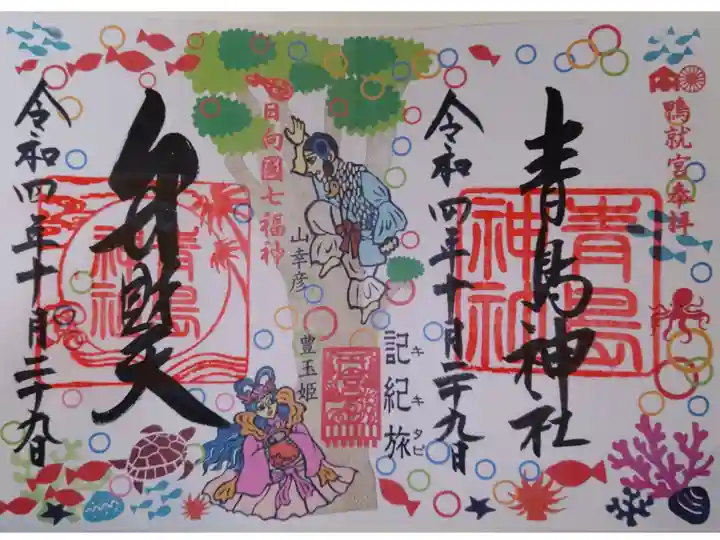 鴨就宮奉拝
青島神社
青島
神社
令和四年十月二十九日
記紀旅
キキタビ
山幸彦
豊玉姫
日向國七福神
弁財天
青島
神社
令和四年十月二十九日